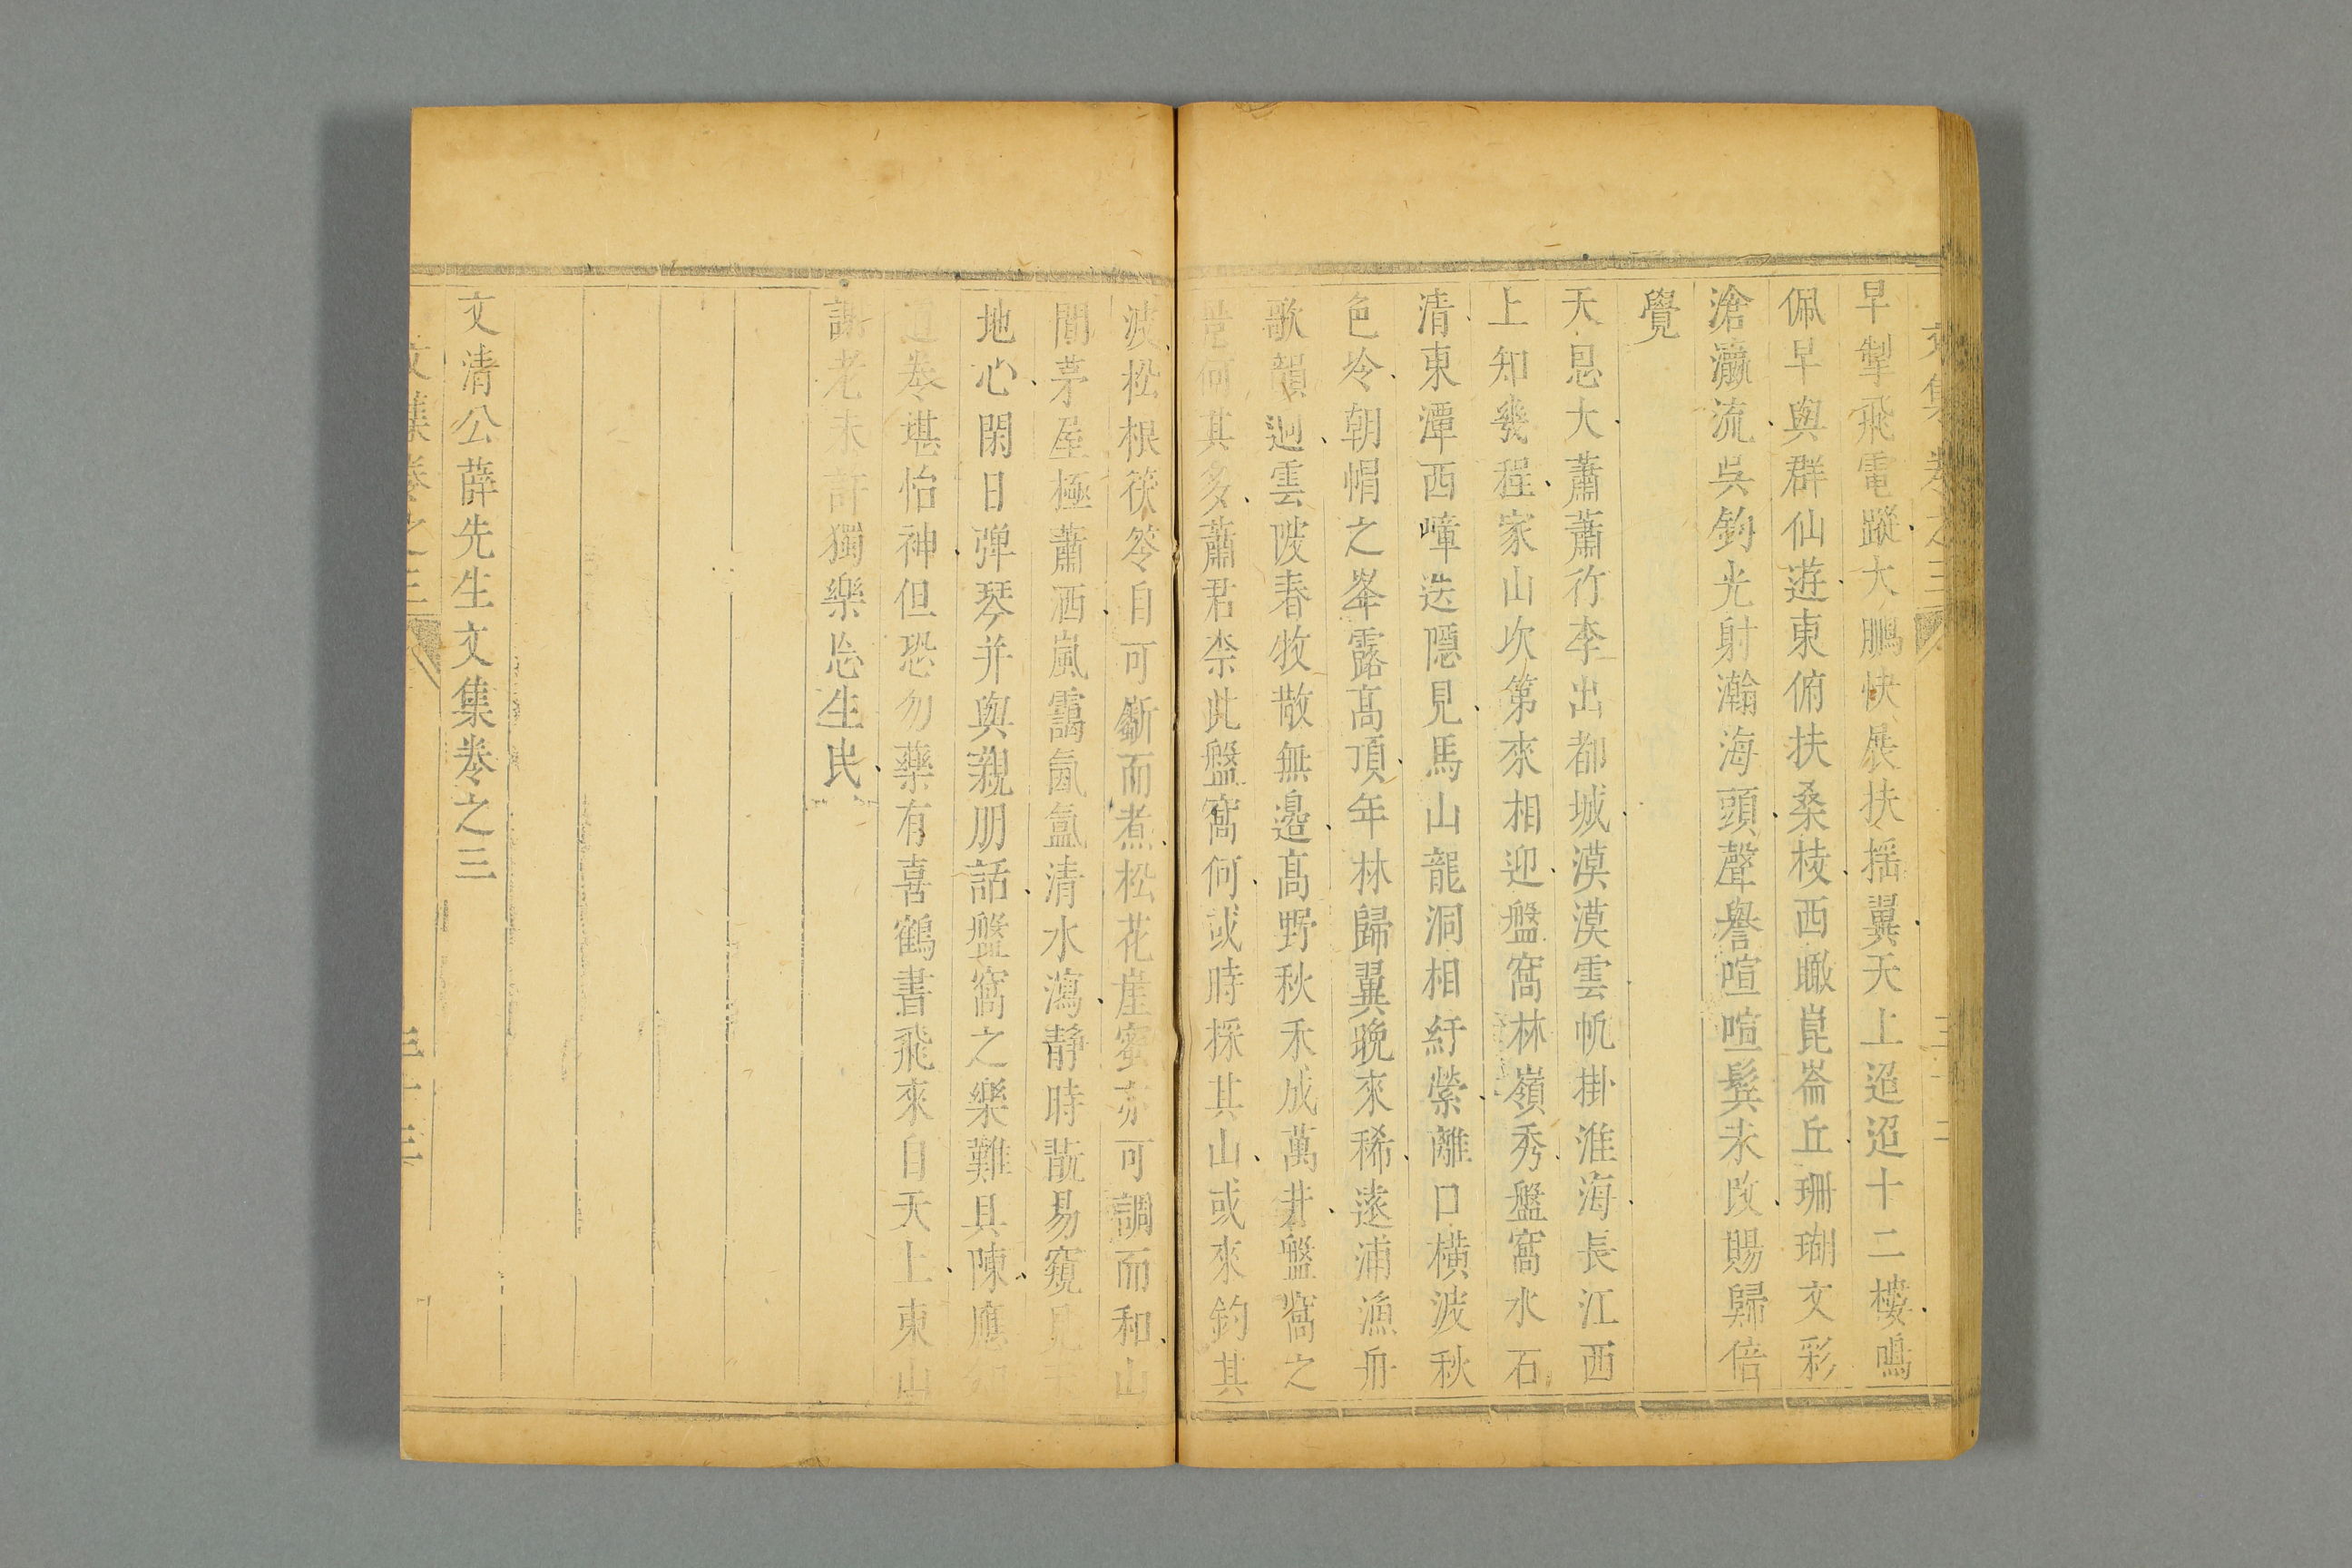 文集卷之三
早掣飛電蹤大鵬快展扶揺翼天上迢迢十二樓鳴
佩早與群仙遊東俯扶桑枝西瞰崑崙丘珊瑚文彩
滄瀛流吳鈎光射瀚海頭聲譽喧喧鬂未改賜歸倍
覺
天恩大蕭蕭行李出都城漠漠雲帆掛淮海長江西
上知幾程家山次第來相迎盤窩林嶺秀盤窩水石
清東潭西嶂迭隱見馬山龍洞相紆縈離口橫波秋
色冷朝帽之峯露髙頂年林歸翼晚來稀逺浦漁舟
歌韻迴雲陂春牧散無邉髙野秋禾成萬井盤窩之
勝何其多蕭君柰此盤窩何或時採其山或來釣其
波松根茯苓自可斸而煮松花崖蜜亦可調而和山
間茅屋極蕭洒嵐靄氤氳清水瀉靜時翫易窺
地心閑日弹琴并與親朋話盤窩之樂難具陳應
道卷堪怡神但恐勿藥有喜鶴書飛來自天上東山
謝老未許獨樂忘生民
文清公薛先生文集卷之三
文集卷之三
三十三